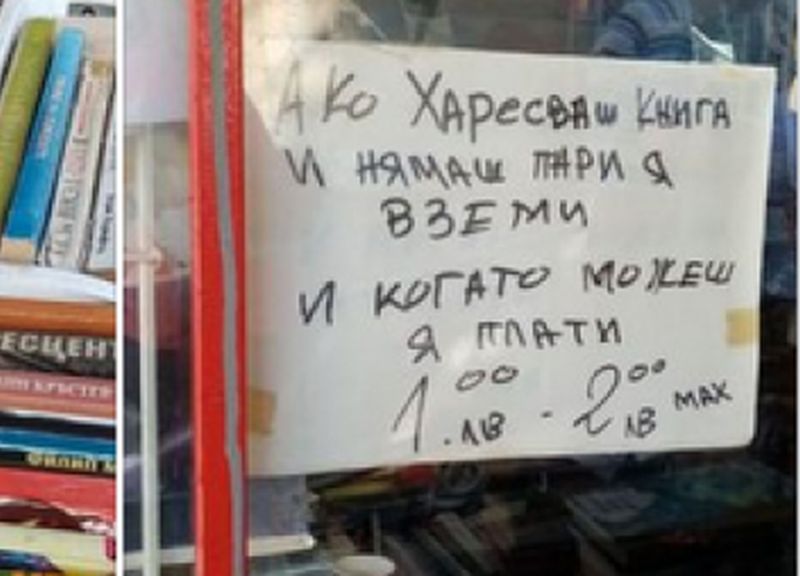 АКО ХАРЕСВАШ КНИГА
И НЯМАШ ПАРИ Я
ВЗЕМИ
И КОГАТО МОЖЕШ
Я ПЛАТИ
1.00 ЛВ - 2 00 ЛВ МАХ
ЕСЦЕНТ
КРЪСТЕР
ФИЛИП М